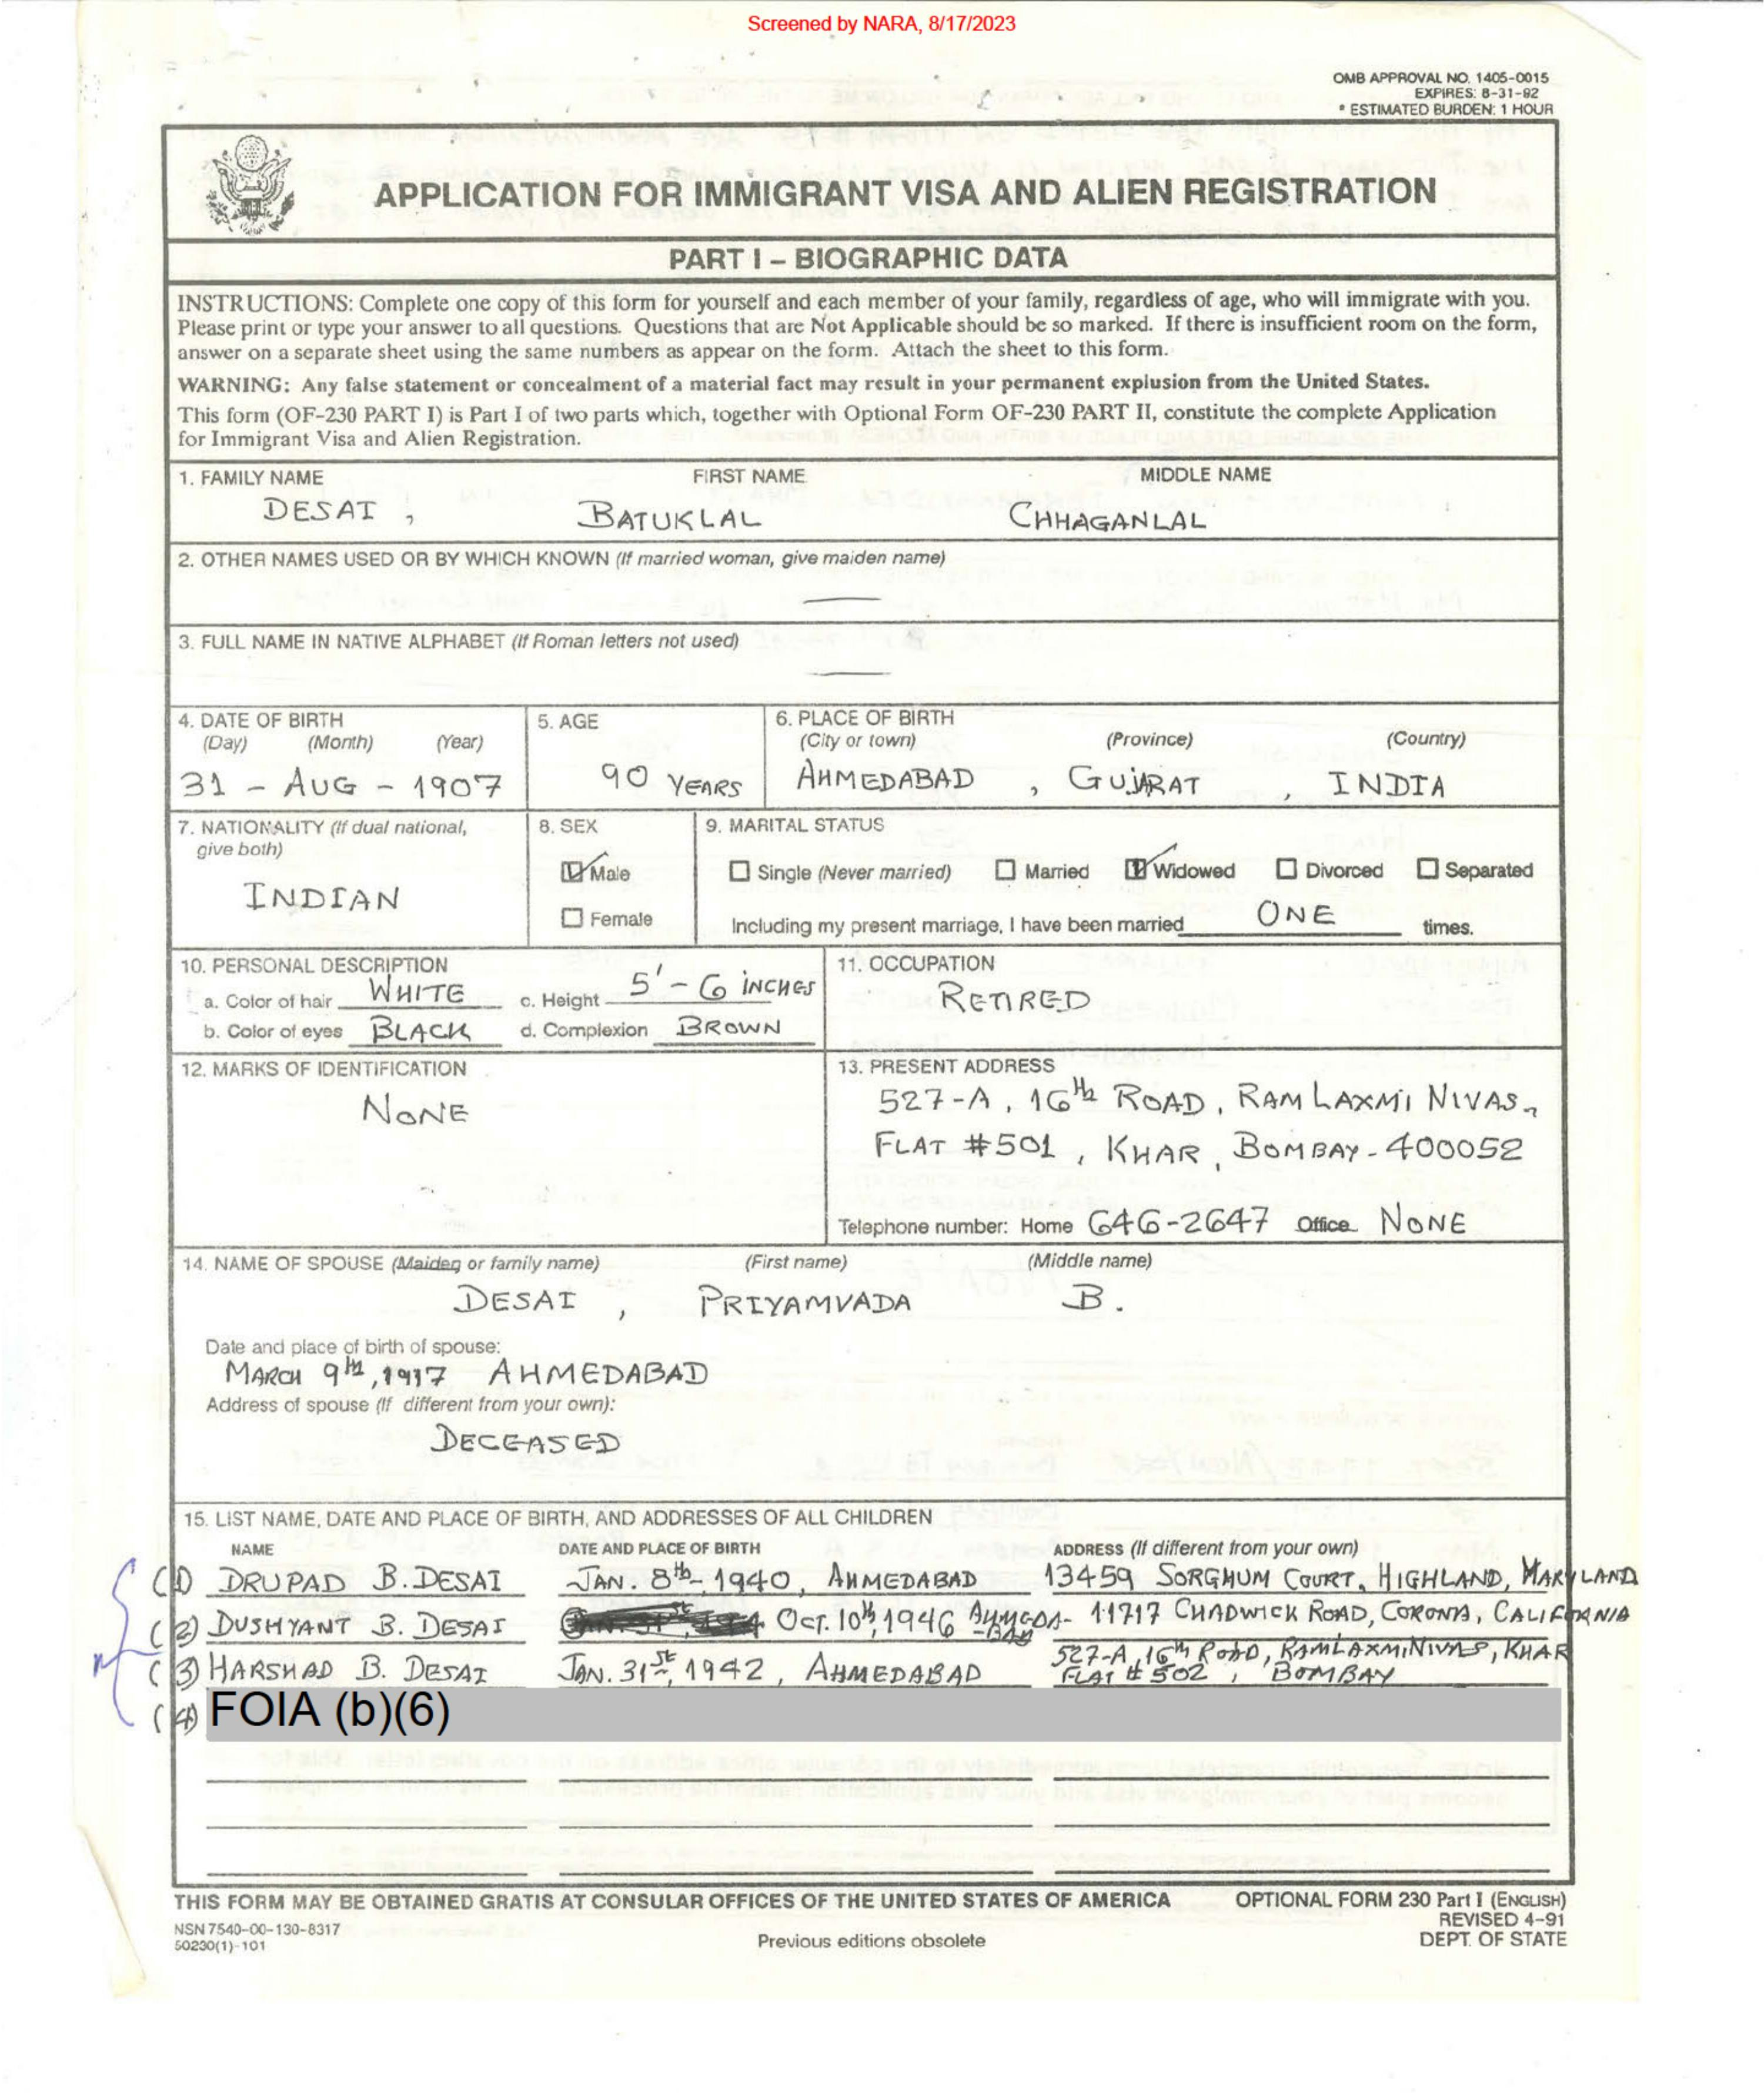 Screened by NARA, 8/17/2023
OMB APPROVAL NO. 1405-0015
EXPIRES: 8-31-92
* ESTIMATED BURDEN: 1 HOUR
APPLICATION FOR IMMIGRANT VISA AND ALIEN REGISTRATION
PART I – BIOGRAPHIC DATA
INSTRUCTIONS: Complete one copy of this form for yourself and each member of your family, regardless of age, who will immigrate with you.
Please print or type your answer to all questions. Questions that are Not Applicable should be so marked. If there is insufficient room on the form,
answer on a separate sheet using the same numbers as appear on the form. Attach the sheet to this form.
WARNING: Any false statement or concealment of a material fact may result in your permanent explusion from the United States.
This form (OF-230 PART I) is Part I of two parts which, together with Optional Form OF-230 PART II, constitute the complete Application
for Immigrant Visa and Alien Registration.
1. FAMILY NAME FIRST NAME MIDDLE NAME
DESAI, BATUKLAL CHHAGANLAL
2. OTHER NAMES USED OR BY WHICH KNOWN (If married woman, give maiden name)
—
3. FULL NAME IN NATIVE ALPHABET (If Roman letters not used)
—
4. DATE OF BIRTH 5. AGE 6. PLACE OF BIRTH
(Day) (Month) (Year) (City or town) (Province) (Country)
31 - AUG - 1907 90 YEARS AHMEDABAD, GUJARAT, INDIA
7. NATIONALITY (If dual national, 8. SEX 9. MARITAL STATUS
give both)
INDIAN
Male Single (Never married) Married Widowed Divorced Separated
Female Including my present marriage, I have been married ONE times.
10. PERSONAL DESCRIPTION 11. OCCUPATION
a. Color of hair WHITE c. Height 5' - 6 INCHES RETIRED
b. Color of eyes BLACK d. Complexion BROWN
12. MARKS OF IDENTIFICATION 13. PRESENT ADDRESS
NONE 527-A, 16th ROAD, RAM LAXMI NIVAS,
FLAT #501, KHAR, BOMBAY - 400052
Telephone number: Home 646-2647 Office NONE
14. NAME OF SPOUSE (Maiden or family name) (First name) (Middle name)
DESAI, PRIYAMVADA B.
Date and place of birth of spouse:
MARCH 9th, 1917 AHMEDABAD
Address of spouse (If different from your own):
DECEASED
15. LIST NAME, DATE AND PLACE OF BIRTH, AND ADDRESSES OF ALL CHILDREN
NAME DATE AND PLACE OF BIRTH ADDRESS (If different from your own)
(1) DRUPAD B. DESAI JAN. 8th, 1940, AHMEDABAD 13459 SORGHUM COURT, HIGHLAND, MARYLAND
(2) DUSHYANT B. DESAI OCT. 10th, 1946 AHMEDA-BAD 11717 CHADWICK ROAD, CORONA, CALIFORNIA
(3) HARSHAD B. DESAI JAN. 31st, 1942, AHMEDABAD 527-A, 16th ROAD, RAMLAXMI NIVAS, KHAR
FLAT # 502, BOMBAY
(4) FOIA (b)(6)
THIS FORM MAY BE OBTAINED GRATIS AT CONSULAR OFFICES OF THE UNITED STATES OF AMERICA OPTIONAL FORM 230 Part I (ENGLISH)
NSN 7540-00-130-8317 REVISED 4-91
50230(1)-101 Previous editions obsolete DEPT. OF STATE